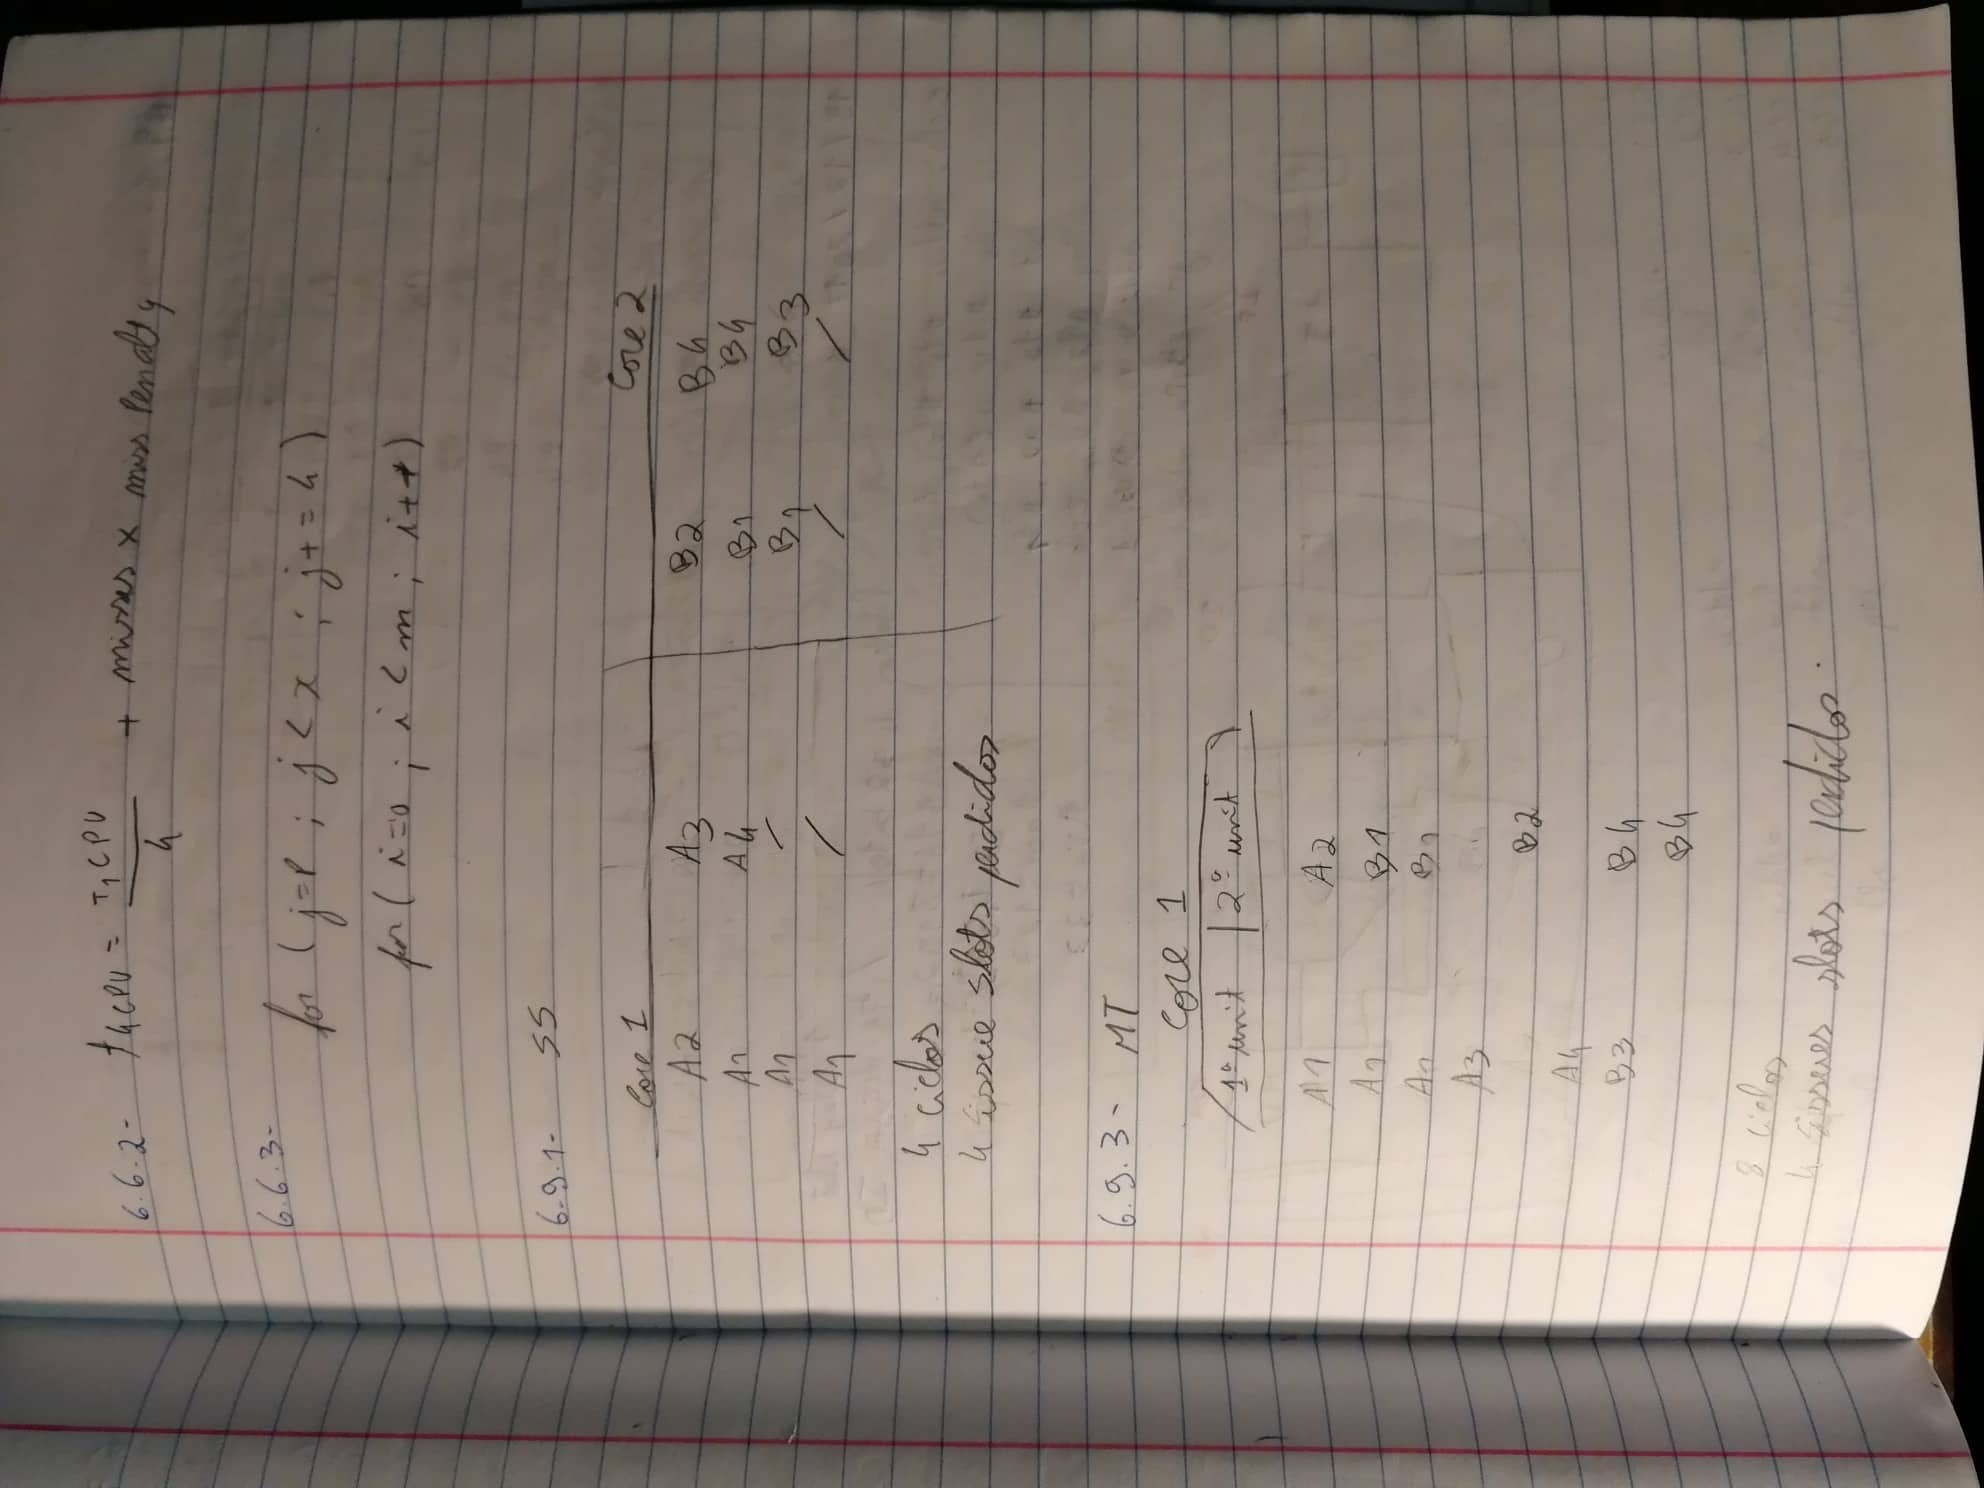 6.6.2- t4CPU = T1CPU / 4 + misses x miss Penalty
6.6.3-
for (j=P ; j < x ; j+=4)
for (i=0 ; i < m ; i++)
6.9.1- SS
Core 1 Core 2
A2 A3 B2 B4
A1 A4 B1 B4
A1 / B1 B3
A1 / / /
4 ciclos
4 issue slots perdidos
6.9.3- MT
Core 1
1º unit | 2º unit
A1 A2
A1 B1
A1 B1
A3
B2
A4
B3 B4
B4
8 ciclos
4 issues slots perdidos.